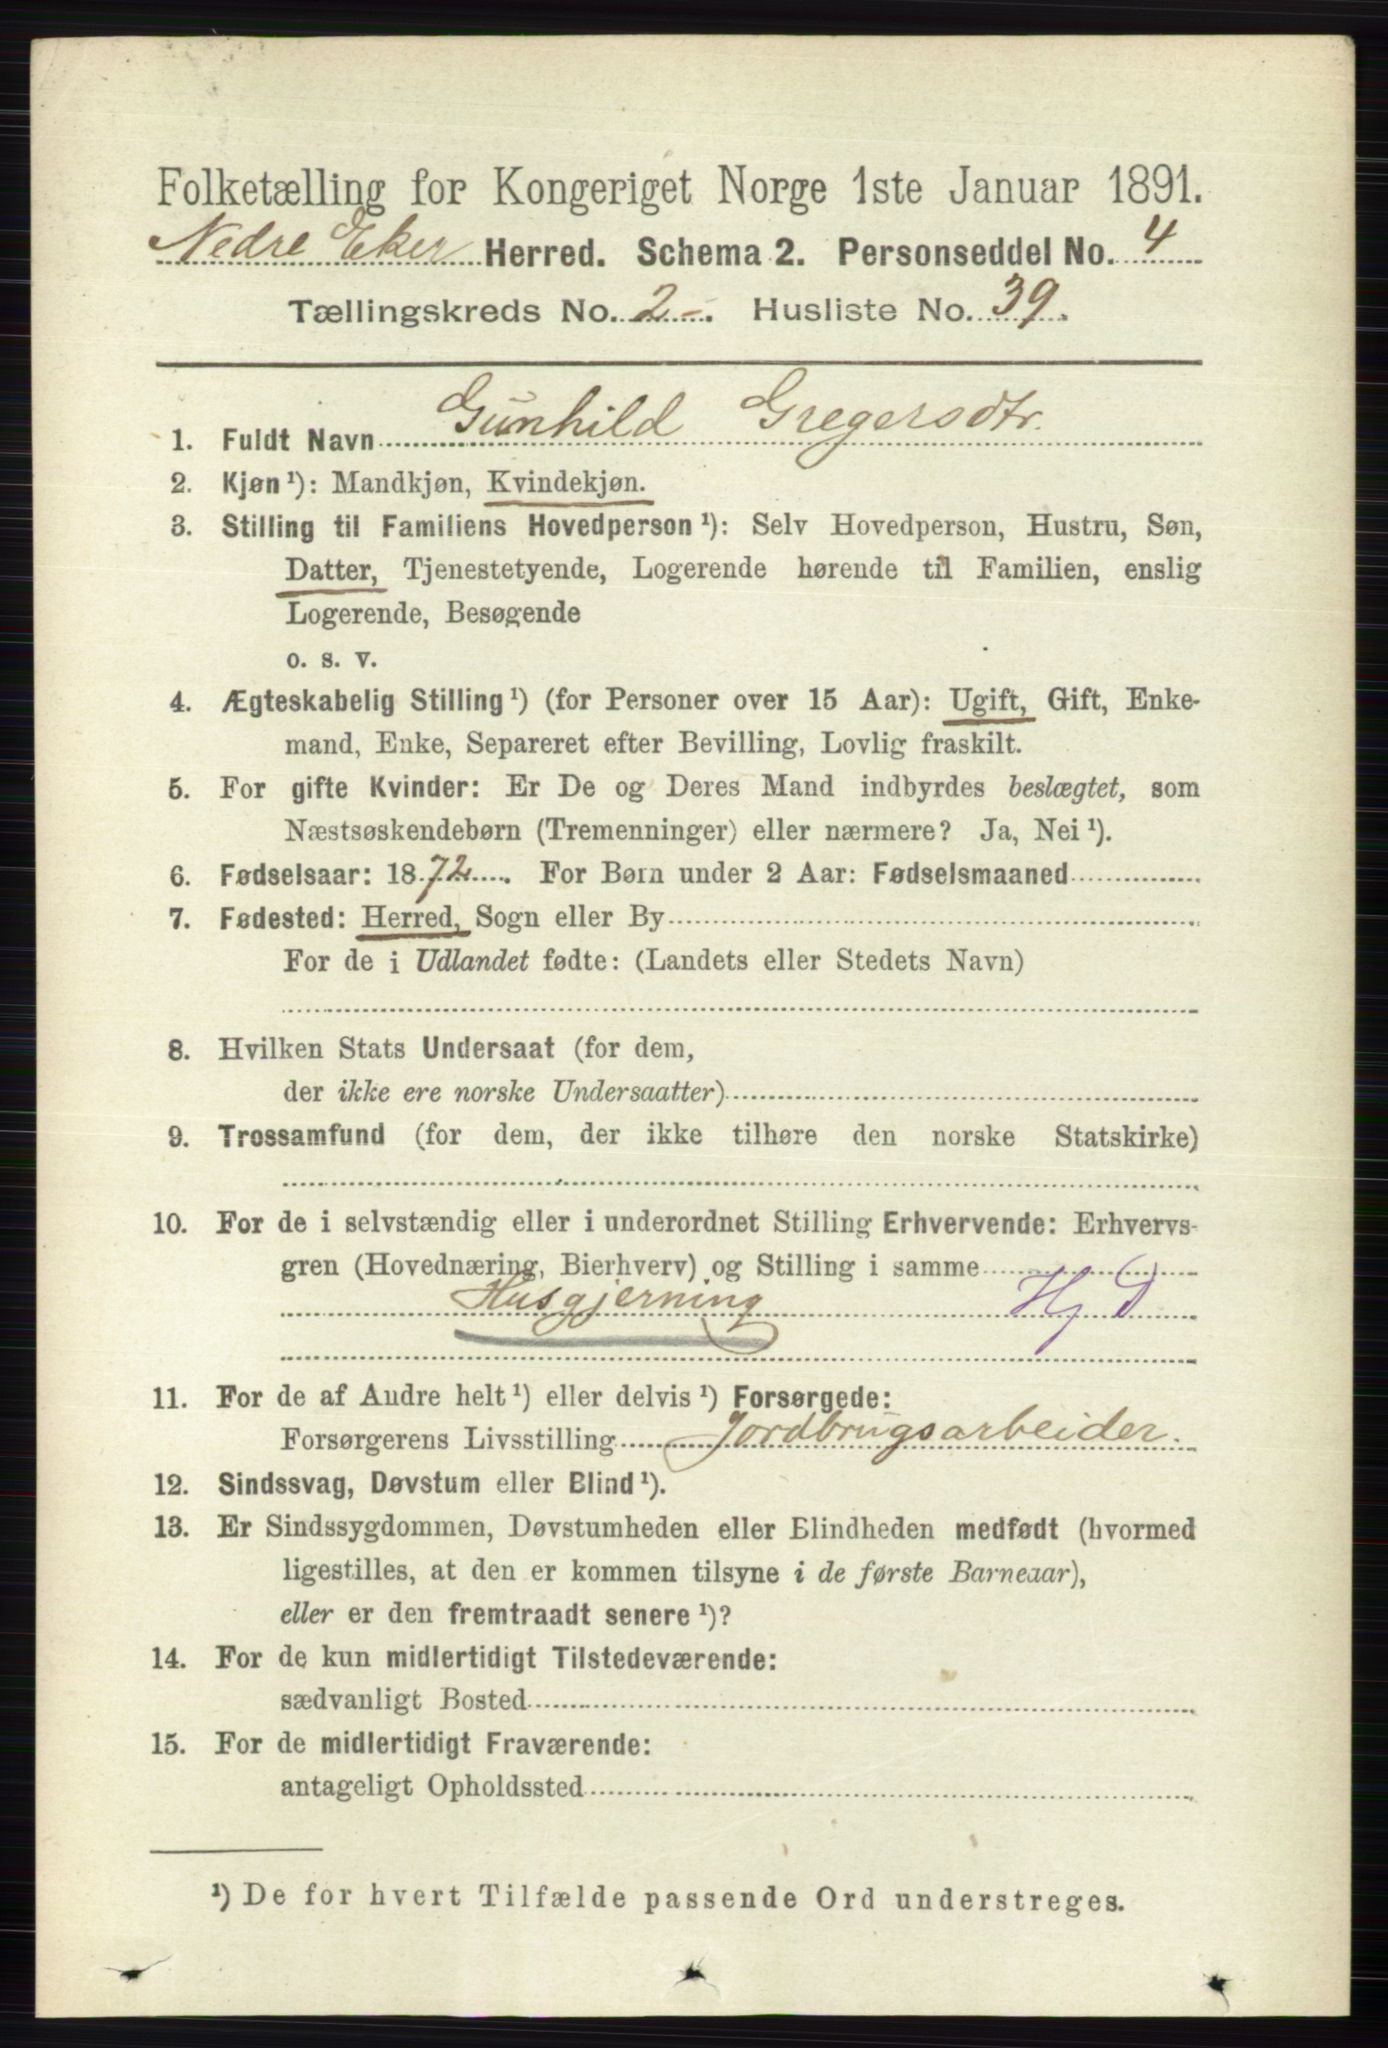 Folketælling for Kongeriget Norge 1ste Januar 1891.
Nedre Eker Herred. Schema 2. Personseddel No. 4
Tællingskreds No. 2 -. Husliste No. 39.
1. Fuldt Navn Gunhild Gregersdtr.
2. Kjøn ¹): Mandkjøn, Kvindekjøn.
3. Stilling til Familiens Hovedperson ¹): Selv Hovedperson, Hustru, Søn,
Datter, Tjenestetyende, Logerende hørende til Familien, enslig
Logerende, Besøgende
o. s. v.
4. Ægteskabelig Stilling ¹) (for Personer over 15 Aar): Ugift, Gift, Enke-
mand, Enke, Separeret efter Bevilling, Lovlig fraskilt.
5. For gifte Kvinder: Er De og Deres Mand indbyrdes beslægtet, som
Næstsøskendebørn (Tremenninger) eller nærmere? Ja, Nei ¹).
6. Fødselsaar: 1872. For Børn under 2 Aar: Fødselsmaaned
7. Fødested: Herred, Sogn eller By
For de i Udlandet fødte: (Landets eller Stedets Navn)
8. Hvilken Stats Undersaat (for dem,
der ikke ere norske Undersaatter)
9. Trossamfund (for dem, der ikke tilhøre den norske Statskirke)
10. For de i selvstændig eller i underordnet Stilling Erhvervende: Erhvervs-
gren (Hovednæring, Bierhverv) og Stilling i samme
Husgjerning Hj D
11. For de af Andre helt ¹) eller delvis ¹) Forsørgede:
Forsørgerens Livsstilling Jordbrugsarbeider.
12. Sindssvag, Døvstum eller Blind ¹).
13. Er Sindssygdommen, Døvstumheden eller Blindheden medfødt (hvormed
ligestilles, at den er kommen tilsyne i de første Barneaar),
eller er den fremtraadt senere ¹)?
14. For de kun midlertidigt Tilstedeværende:
sædvanligt Bosted
15. For de midlertidigt Fraværende:
antageligt Opholdssted
¹) De for hvert Tilfælde passende Ord understreges.